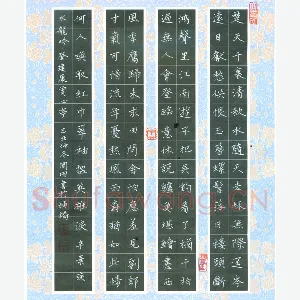 楚天千里清秋水隨天去秋無際遥岑
遠目獻愁供恨玉簪螺髻落日樓頭斷
鴻聲里江南游子把吴鈎看了欄干拍
遍無人會登臨意休說鱸魚堪膾盡西
風季鷹歸未求田問舍怕應羞見劉郎
才氣可惜流年憂愁風雨樹猶如此倩
何人喚取紅巾翠袖揾英雄淚辛棄疾
水龍吟登建康賞心亭